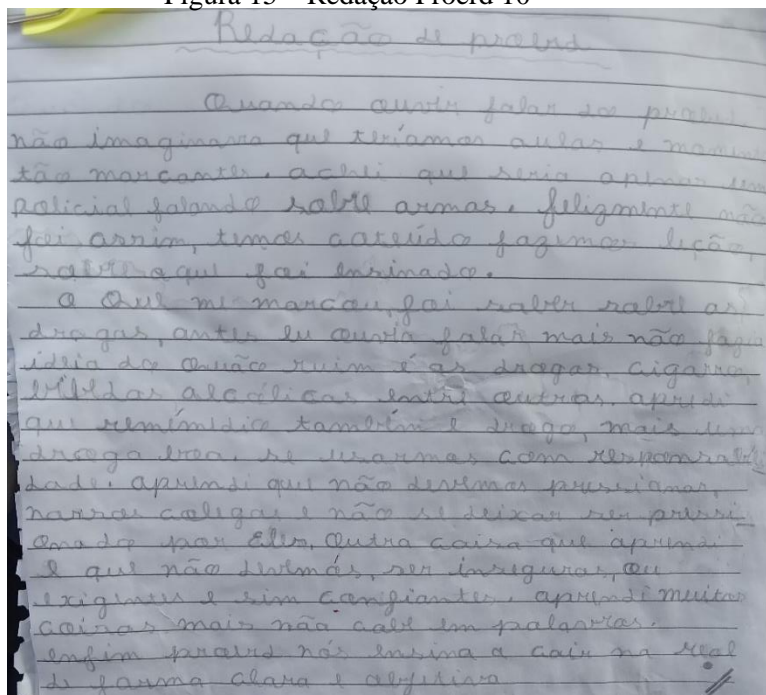 Figura 15 – Redação Proerd 10
Redação de proerd
Quando ouvir falar do proerd
não imaginava que teríamos aulas e momen
tão marcantes. achei que seria apenas um
policial falando sobre armas. felizmente não
foi assim, temos conteúdo fazemos lição,
sobre o que foi ensinado.
O Que me marcou, foi saber sobre as
drogas, antes eu ouvia falar mais não fazia
ideia do quão ruim é as drogas. cigarro,
bebidas alcólicas entre outras. aprendi
que também é droga, mais uma
droga boa. se usarmos com responsabili
dade. aprendi que não devemos pressionar,
nossos colegas e não se deixar ser pressi-
onado por Eles, Outra coisa que aprendi
e que não devemos, ser inseguros, ou
exigentes e sim confiantes. aprendi muitas
coisas mais não cabe em palavras.
enfim proerd nós ensina a cair na real
de forma clara e objetiva